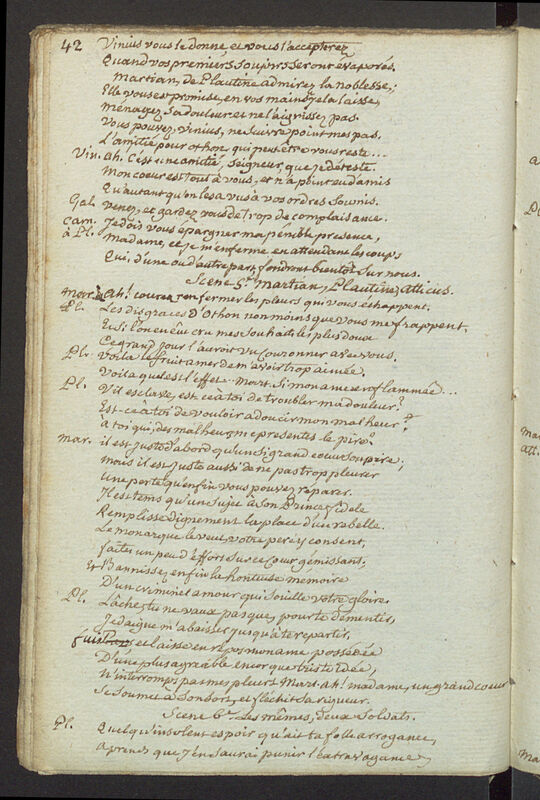 42 Vinius vous le donne, et vous l'accepterez
Quand vos premiers soupirs seront evaporés.
Martian, de Plautine admirez la noblesse,
Elle vous est promise, en vos mains je la laisse,
Ménagez sa douleur et ne l'aigrissez pas.
Vous pouvez, Vinius, ne suivre point mes pas.
L'amitié pour othon, qui peut être vous reste...
Vin. Ah. C'est une amitié, Seigneur, que je déteste.
Mon coeur est tout à vous, et n'a point eu d'amis
Qu'autant qu'on les a vus à vos ordres soumis.
Gal. venez, et gardez vous de trop de complaisance.
Cam. Je dois vous épargner ma pénible presence,
à Pl. Madame, et je m'enferme en attendant les coups
Qui, d'une ou d'autre part, fondront bientôt sur nous.
Scene 5e. Martian, Plautine, Atticus.
Mar. Ah! courez renfermer les pleurs qui vous échappent.
Pl. Les disgraces d'Othon non moins que vous me frappent.
Et si l'on en eû cru mes souhaits les plus doux
Ce grand jour l'auroit vu couronner avec vous.
Pl. Voilà le fruit amer de m'avoir trop aimée.
Voila quel est l'effet. Mart. Si mon ame enflammée...
Pl. Vil esclave, est-ce à toi de troubler ma douleur?
Est-ce à toi de vouloir adoucir mon malheur?
à toi qui, des malheurs, me presentes le pire?
mar. il est juste d'abord qu'un si grand coeur soupire,
mais il est juste aussi de ne pas trop pleurer
Une perte qu'enfin vous pouvez reparer.
Il est tems qu'un sujet à son Prince fidele
Remplisse dignement la place d'un rebelle.
Le monarque le veut, votre pere y consent,
faites un peu d'efforts sur ce coeur gémissant,
Et bannissez enfin la honteuse memoire
D'un criminel amour qui souille votre gloire.
Pl. Lâche, tu ne vaux pas que, pour te démentir,
Je daigne m'abaisser jusqu'à te repartir,
fuis et laisse en repos mon ame possédée
D'une plus agréable encor que triste idée,
N'interromps pas mes pleurs. Mart. Ah! madame, un grand coeur
Se soumet à son sort, et fléchit sa rigueur.
Scene 6e. Les mêmes, deux Soldats.
Pl. Quelqu'insolent espoir qu'ait ta folle arrogance,
Aprends que j'en saurai punir l'extravagance,